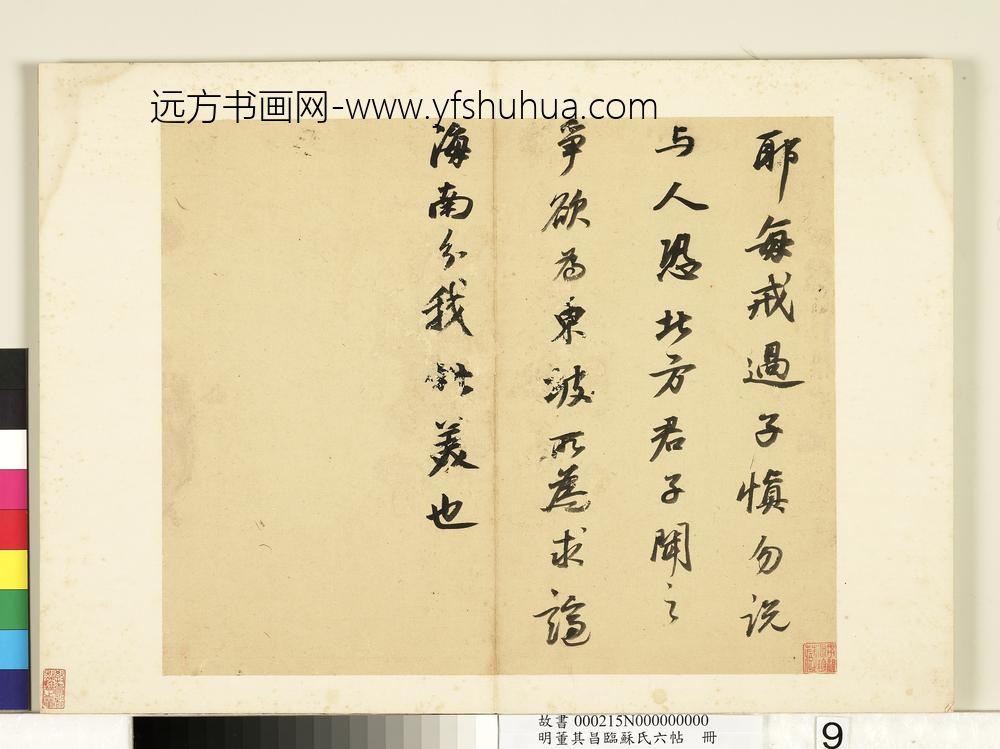 远方书画网-www.yfshuhua.com
耶每戒過子慎勿説
与人恐北方君子聞之
爭欲为東坡所爲求謫
海南分我此美也
故書 000215N000000000
明董其昌臨蘇氏六帖 冊
9